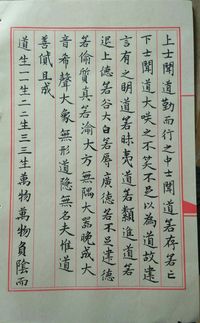 上士聞道勤而行之中士聞道若存若亡
下士聞道大笑之不笑不足以為道故建
言有之明道若昧夷道若纇進道若
退上德若谷大白若辱廣德若不足建德
若偷質真若渝大方無隅大器晚成大
音希聲大象無形道隱無名夫惟道
善貸且成
道生一一生二二生三三生萬物萬物負陰而